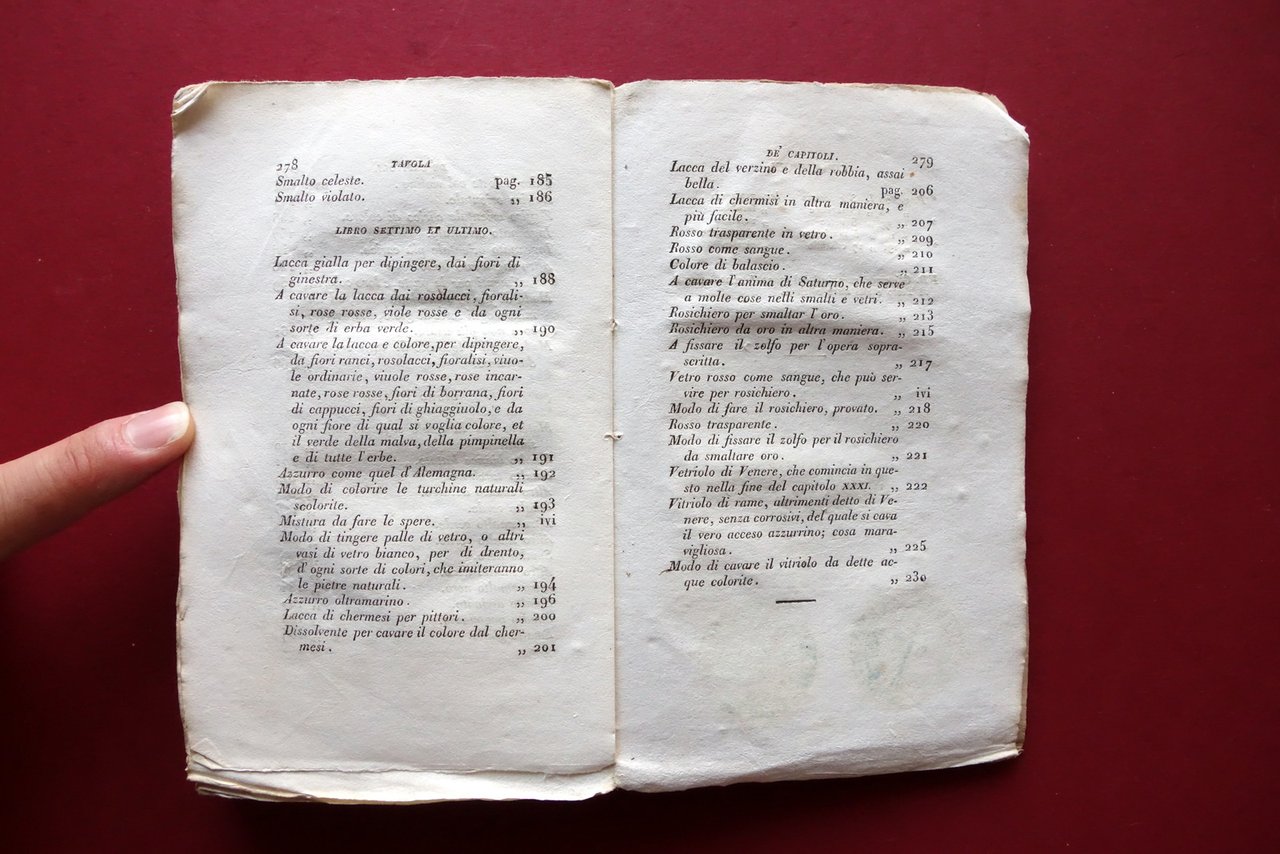 278 TAVOLA
Smalto celeste. pag. 185
Smalto violato. ,, 186
LIBRO SETTIMO ET ULTIMO.
Lacca gialla per dipingere, dai fiori di
ginestra. ,, 188
A cavare la lacca dai rosolacci, fiorali-
si, rose rosse, viole rosse e da ogni
sorte di erba verde. ,, 190
A cavare la lacca e colore, per dipingere,
da fiori ranci, rosolacci, fioralisi, viuo-
le ordinarie, viuole rosse, rose incar-
nate, rose rosse, fiori di borrana, fiori
di cappucci, fiori di ghiaggiuolo, e da
ogni fiore di qual si voglia colore, et
il verde della malva, della pimpinella
e di tutte l'erbe. ,, 191
Azzurro come quel d'Alemagna. ,, 192
Modo di colorire le turchine naturali
scolorite. ,, 193
Mistura da fare le spere. ,, ivi
Modo di tingere palle di vetro, o altri
vasi di vetro bianco, per di drento,
d'ogni sorte di colori, che imiteranno
le pietre naturali. ,, 194
Azzurro oltramarino. ,, 196
Lacca di chermesi per pittori. ,, 200
Dissolvente per cavare il colore dal cher-
mesi. ,, 201
DE' CAPITOLI. 279
Lacca del verzino e della robbia, assai
bella. pag. 206
Lacca di chermisi in altra maniera, e
più facile. ,, 207
Rosso trasparente in vetro. ,, 209
Rosso come sangue. ,, 210
Colore di balascio. ,, 211
A cavare l'anima di Saturno, che serve
a molte cose nelli smalti e vetri. ,, 212
Rosichiero per smaltar l'oro. ,, 213
Rosichiero da oro in altra maniera. ,, 215
A fissare il zolfo per l'opera sopra-
scritta. ,, 217
Vetro rosso come sangue, che può ser-
vire per rosichiero. ,, ivi
Modo di fare il rosichiero, provato. ,, 218
Rosso trasparente. ,, 220
Modo di fissare il zolfo per il rosichiero
da smaltare oro. ,, 221
Vetriolo di Venere, che comincia in que-
sto nella fine del capitolo XXXI. ,, 222
Vitriolo di rame, altrimenti detto di Ve-
nere, senza corrosivi, del quale si cava
il vero acceso azzurrino; cosa mara-
vigliosa. ,, 225
Modo di cavare il vitriolo da dette ac-
que colorite. ,, 230